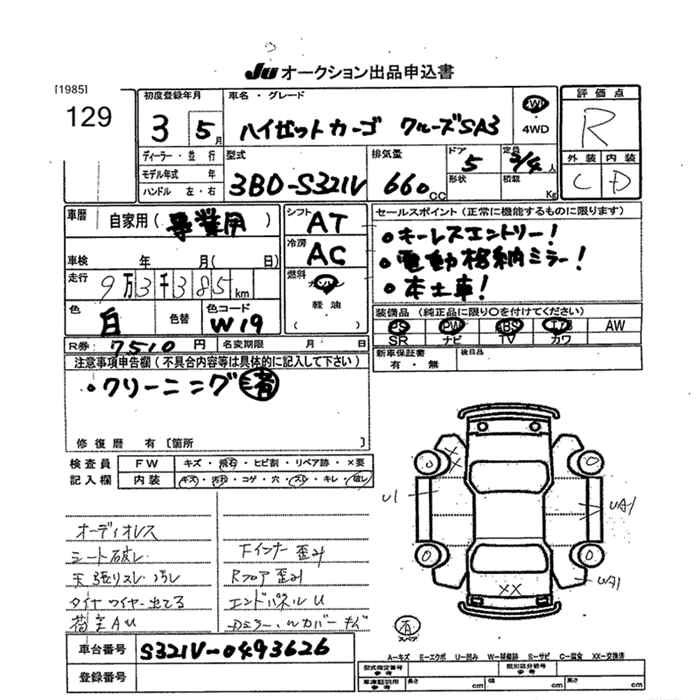 JU オークション出品申込書
[1985]
129
初度登録年月
3 5月
車名・グレード
ハイゼットカーゴ クルーズSA3
2WD
4WD
評価点
R
ディーラー・並行
モデル年式 年
ハンドル 左・右
型式
3BD-S321V
排気量
660cc
ドア
5
形状
定員
2/4人
積載 Kg
外装 内装
C D
車暦
自家用( 事業用 )
車検 年 月( 日)
走行
9万3千385km
色
白
色替
色コード
W19
シフト
AT
冷房
AC
燃料
ガソリン
軽油
( )
セールスポイント(正常に機能するものに限ります)
・キーレスエントリー!
・電動格納ミラー!
・本土車!
装備品(純正品に限り〇を付けてください)
PS PW ABS エアB AW
SR ナビ TV カワ
新車保証書
有・無
後日品
R券: 7510円
名変期限 月 日
注意事項申告欄(不具合内容等は具体的に記入して下さい)
・クリーニング済
修復歴 有[箇所 ]
検査員
記入欄
FW
キズ・飛石・ヒビ割・リペア跡・×要
内装
キズ・汚れ・コゲ・穴・スレ・キレ・破レ
オーディオレス
シート破レ
天張りスレ 汚レ
タイヤ ワイヤー出てる
荷室AU
Fインナー歪み
Rフロア歪み
エンドパネルU
Dミラー カバーキズ
U1
UA1
UA1
X
X
XX
0
0
0
0
有
スペア
車台番号
S321V-0493626
登録番号
A=キズ E=エクボ U=凹み W=補修跡 S=サビ C=腐食 XX=交換済
型式指定番号
参考
類別区分番号
参考
車庫証明用
参考
長さ cm
幅 cm
高さ cm